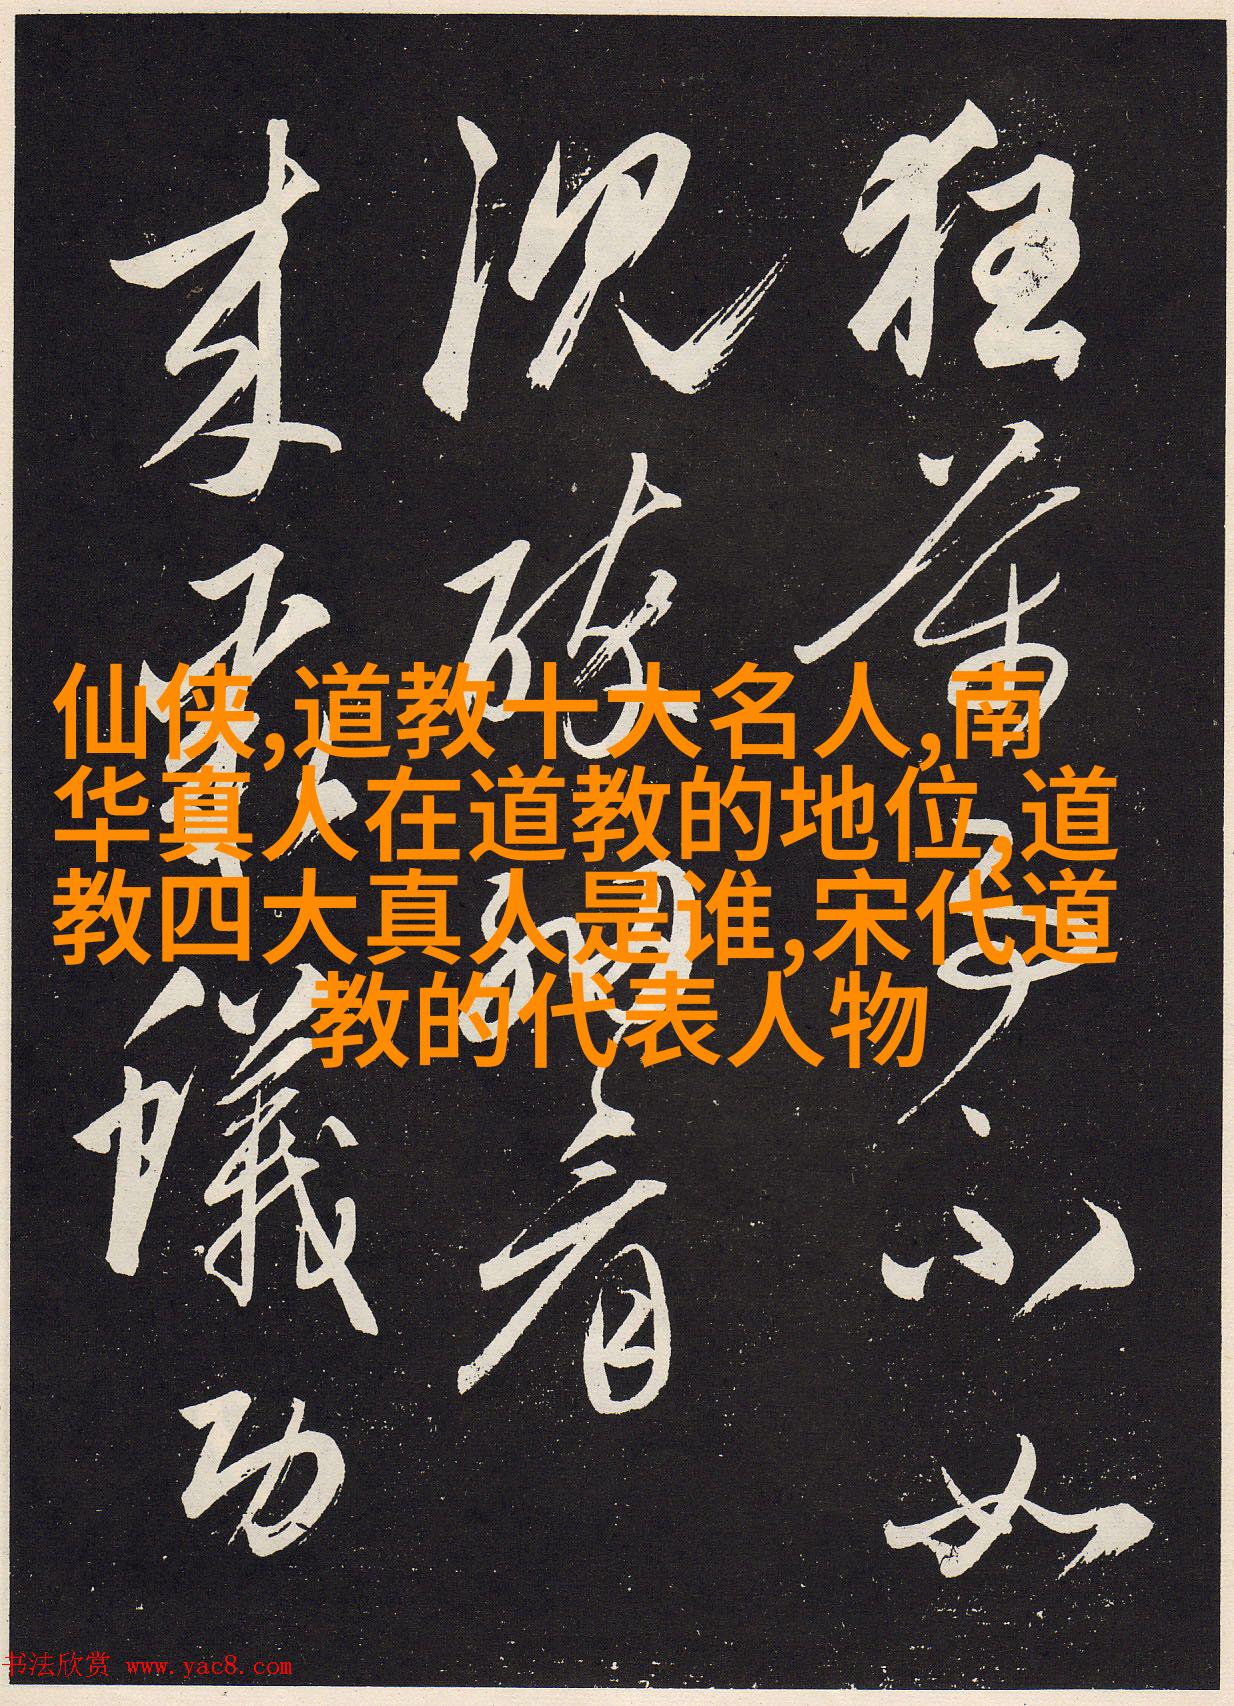 仙侠,道教十大名人,南
华真人在道教的地位,道
教四大真人是谁,宋代道
教的代表人物
狂
不如
况
来
蟻功
书法欣赏 www.yac8.com